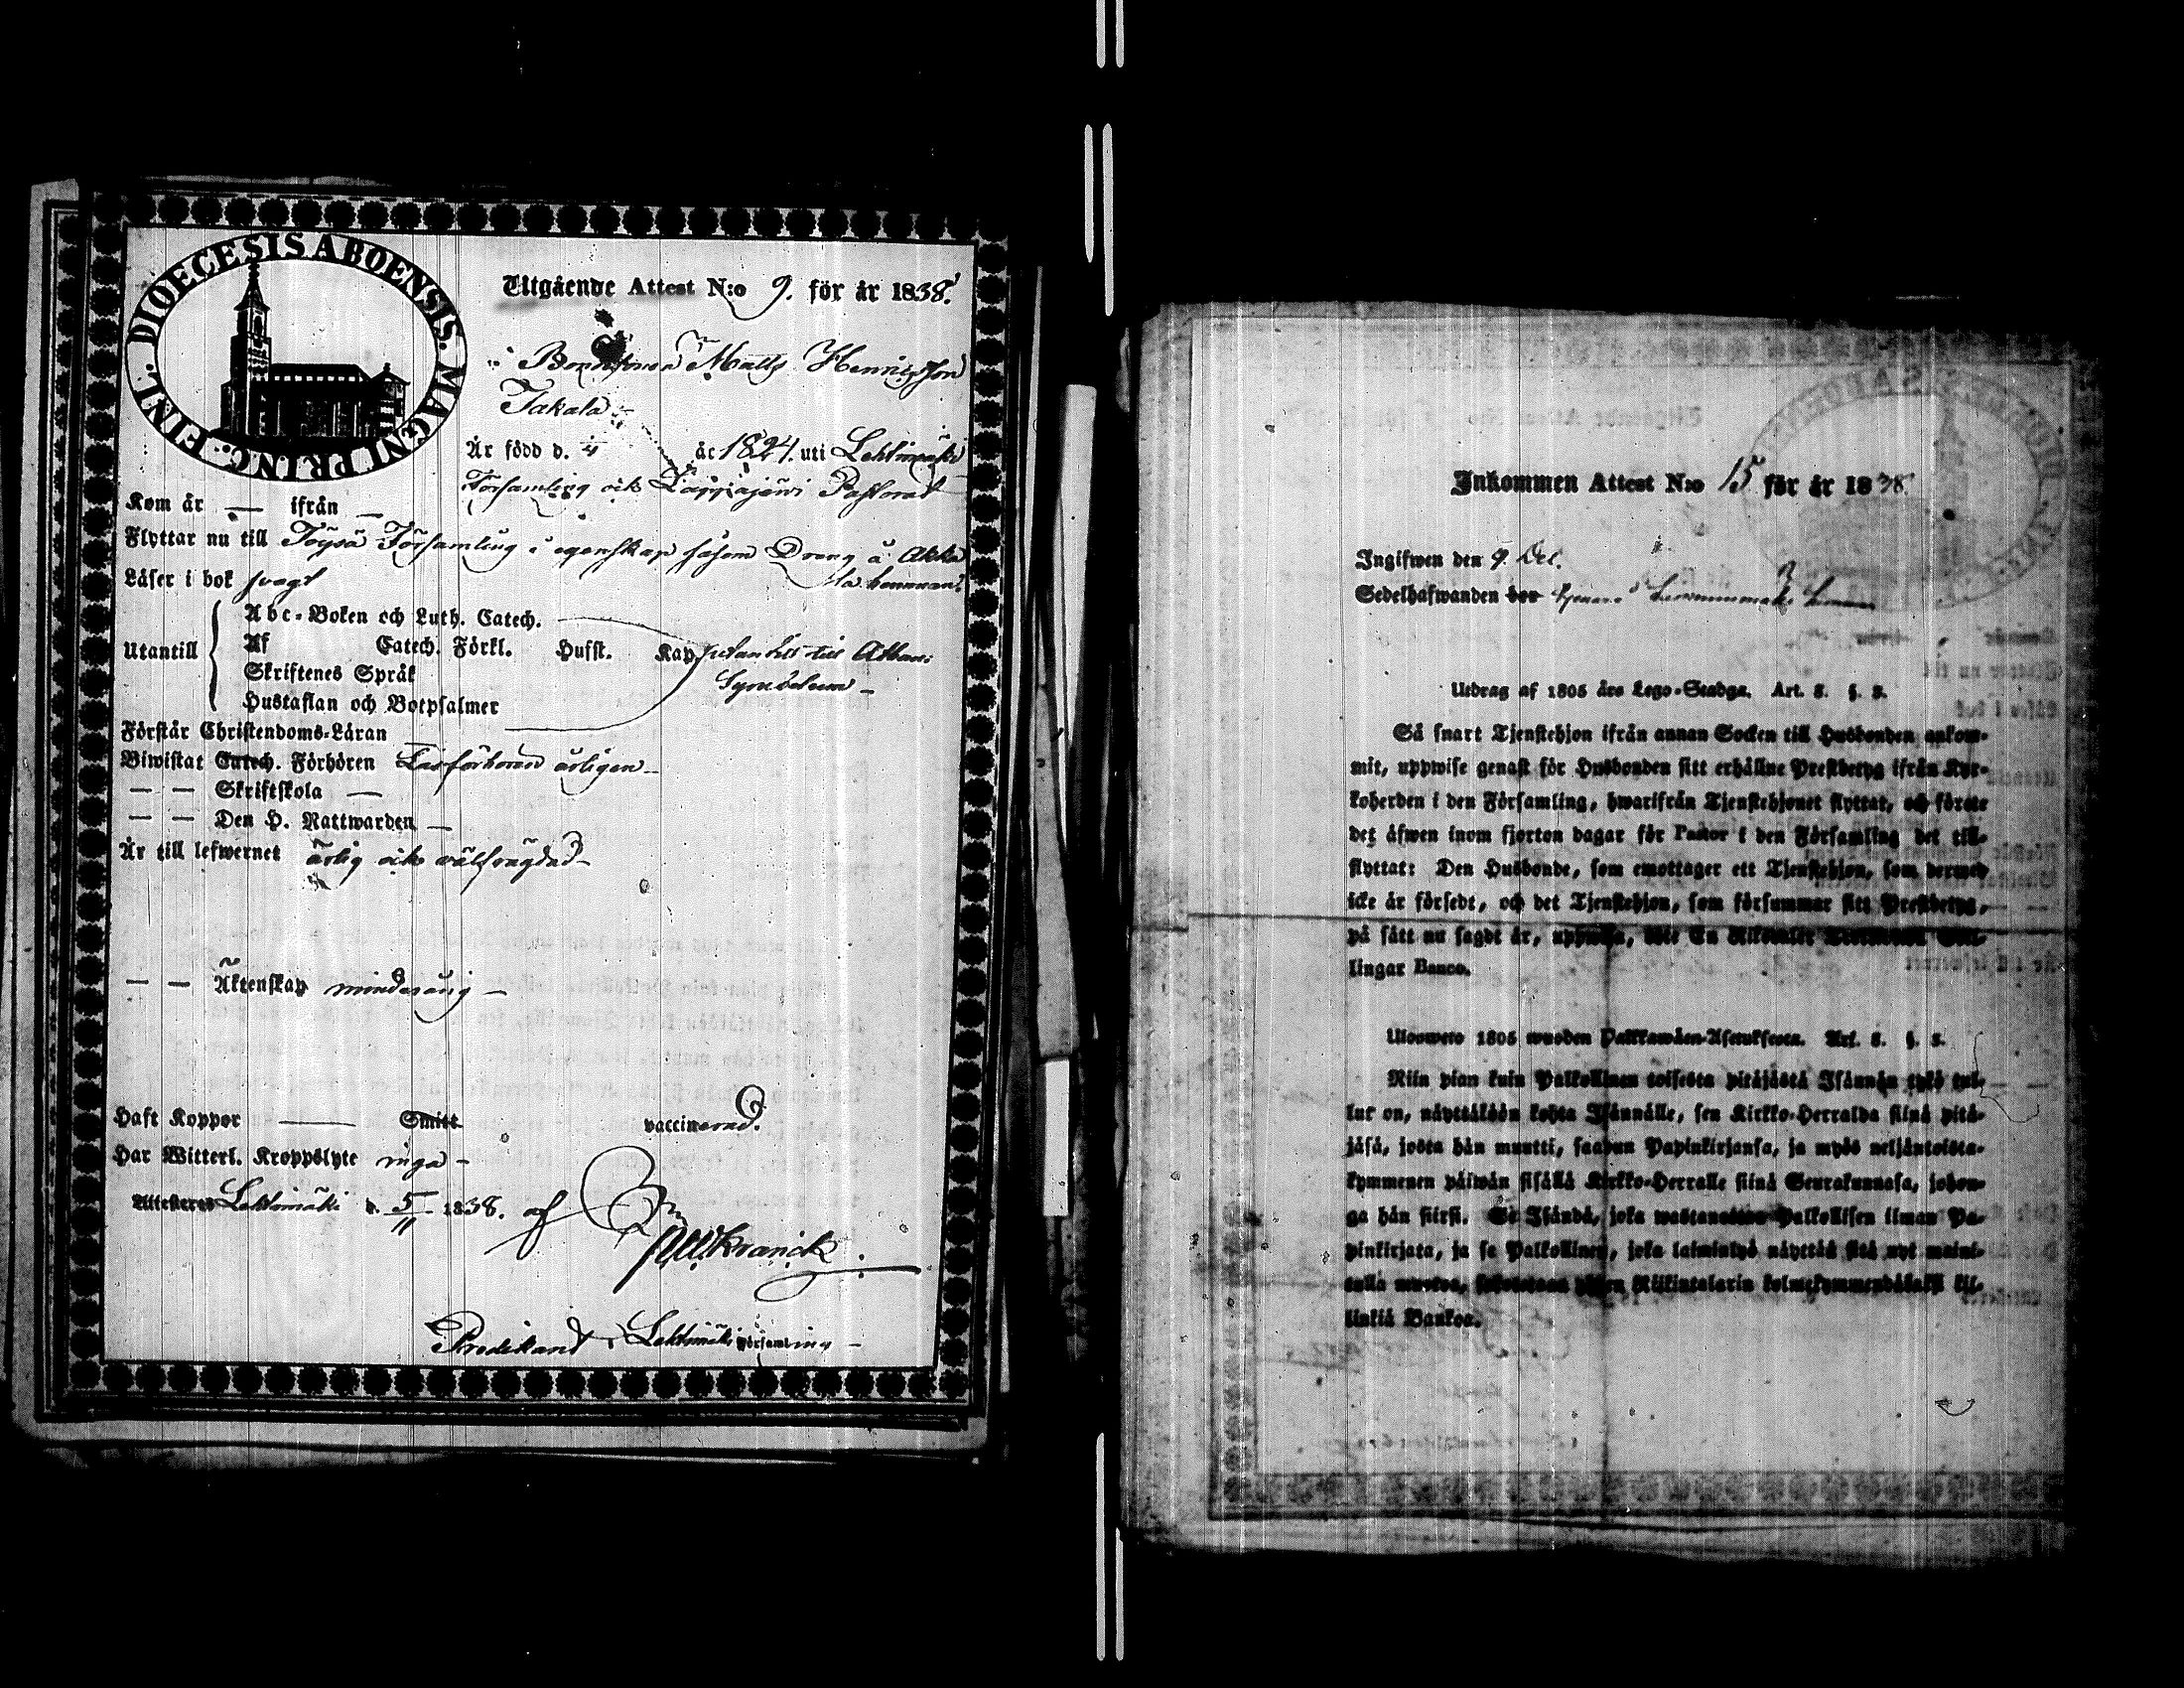 DIOECESIS ABOENSIS. MAGNI PRINC. FINL.
Utgående Attest N:o 9. för år 1838.
Bondesonen Matts Henricsson
Takala
Är född d. år 1824. uti Lehtimäki
Församling och Lappajärvi Pastorat
Kom år — ifrån —
Flyttar nu till Töysä Församling i egenskap såsom Dreng å
hemman
Läser i bok svagt
Utantill
Abc-Boken och Luth. Catech.
Af Catech. Förkl. Hufst. Kap. utantill till Athan:
Skriftenes Språk Symbolum —
Hustaflan och Botpsalmer
Förstår Christendoms-Läran
Biwistat Catech. Förhören Läsförhören årligen —
— — Skriftskola —
— — Den H. Nattwarden —
Är till lefwernet ärlig och välfrägdad —
— — Äktenskap minderårig —
Haft Koppor — Smitt vaccinerad.
Har Witterl. Kroppslyte inga —
Attesteras Lehtimäki d. 5/11 1838. af
Kranck.
Predikant i Lehtimäki Församling —
Inkommen Attest N:o 15 för år 1838.
Ingifwen den 9 Dec.
Sedelhafwanden bor
Utdrag af 1805 års Lego-Stadga. Art. 8. §. 3.
Så snart Tjenstehjon ifrån annan Socken till Husbonden ankom-
mit, uppwise genast för Husbonden sitt erhållne Prestbetyg ifrån Kyr-
koherden i den Församling, hwarifrån Tjenstehjonet flyttat, och förete
det äfwen inom fjorton dagar för Pastor i den Församling det till-
flyttat: Den Husbonde, som emottager ett Tjenstehjon, som dermed
icke är försedt, och det Tjenstehjon, som försummar sitt Prestbetyg,
på sätt nu sagdt är, uppwisa,
lingar Banco.
Uloswето 1805 wuoden Palkkawäen-Asetuksesta. Art. 8. §. 3.
Niin pian kuin Palkollinen toisesta pitäjästä Isännän tykö tul-
lut on, näyttäköön kohta Isännälle, sen Kirkko-Herralda siinä pitä-
jäsä, josta hän muutti, saadun Papinkirjansa, ja myös neljäntoista-
kymmenen päiwän sisällä Kirkko-Herralle siinä Seurakunnasa, johon-
ga hän siirsi. Se Isändä, joka Palkollisen ilman Pa-
pinkirjata, ja se Palkollinen, joka laiminlyö näyttää sitä nyt maini-
tulla Riikintalarin kolmekymmendäkaksi kil-
linkiä Bankoa.